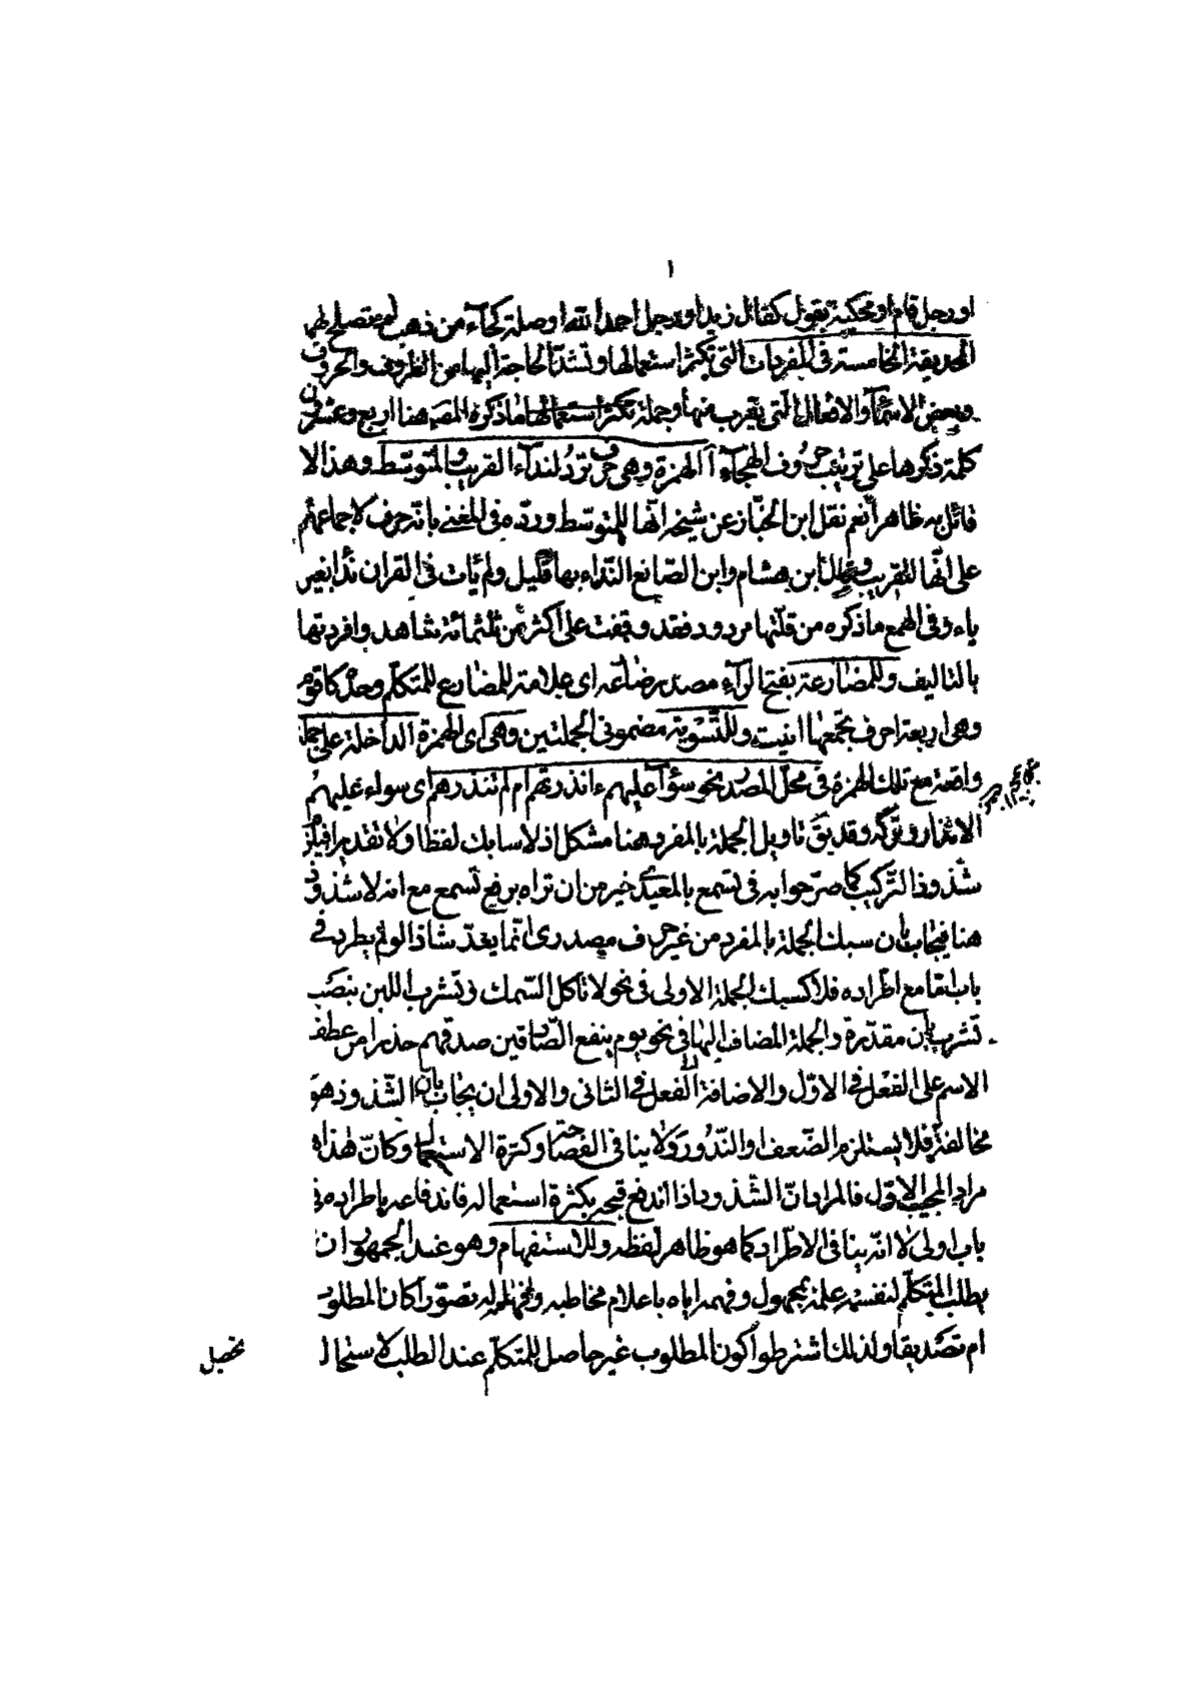 ١
او رجل قام او محكية بقول كقال زيد او رجل احمد الله او صلة كجاء من ذهب
الحديقة الخامسة في المفردات التي يكثر استعمالها وتشتد الحاجة اليها من الظروف والحروف
وبعض الاسماء والافعال التي يقرب منها وجملة تكثر استعمالها ما ذكره المصـ هنا اربع وعشرون
كلمة ذكرها على ترتيب حروف الهجاء أ الهمزة وهي حرف تردُ لنداء القريب والمتوسّط وهذا لا
قائل به ظاهرا نعم نقل ابن الخبّاز عن شيخه انّها للمتوسّط وردّه في المغنى بانّه خرق لاجماعهم
على انّها للقريب وقال ابن هشام وابن الصّايغ النّداء بها قليل ولم يأت في القران نداء بغير
ياء وفي الهمع ما ذكره من قلّتها مردود فقد وقفت على اكثر من ثلثمائة شاهد وافردتها
بالتاليف وللمضارعة بفتح الراء مصدر ضارعه اى علامة للمضارع للمتكلّم وحده كاقوم
وهى اربعة احرف يجمعها انيت وللتّسوية مضمونى الجملتين وهى اى الهمزة الداخلة على جملة
واقعة مع تلك الهمزة في محلّ المصدر نحو سواء عليهم ءانذرتهم ام لم تنذرهم اى سواء عليهم
الانذار وتركه وقد يق تاويل الجملة بالمفرد هنا مشكل اذ لا سابك لفظا ولا تقديرا فيلزم
شذوذ التركيب كما صرّحوا به في تسمع بالمعيدى خير من ان تراه برفع تسمع مع انه لا شذوذ
هنا فيجاب بان سبك الجملة بالمفرد من غير حرف مصدرى انّما يعدّ شاذا لو لم يطرد في
باب امّا مع اطّراده فلا كسبك الجملة الاولى في نحو لا تاكل السّمك وتشرب اللبن بنصب
تشرب بان مقدّرة والجملة المضاف اليها في نحو يوم ينفع الصّادقين صدقهم حذرا من عطف
الاسم على الفعل في الاوّل والاضافة الى الفعل في الثانى والاولى ان يجاب بان الشّذوذ هو
مخالفة فلا يستلزم الضّعف والنّدور ولا ينافى الفصاحة وكثرة الاستعمال وكانّ هذا
مراد المجيب الاوّل فالمراد انّ الشّذوذ اذا اندفع قبحه بكثرة استعماله فاندفاعه باطراده في
باب اولى لا انّه ينافى الاطّراد كما هو ظاهر لفظه وللاستفهام وهو عند الجمهور ان
يطلب المتكلّم لنفسه علمه بمجهول وفهمه اياه باعلام مخاطبه تصوّرا كان المطلوب
ام تصديقا ولذلك اشترطوا كون المطلوب غير حاصل للمتكلّم عند الطلب لاستحالة
تحصيل